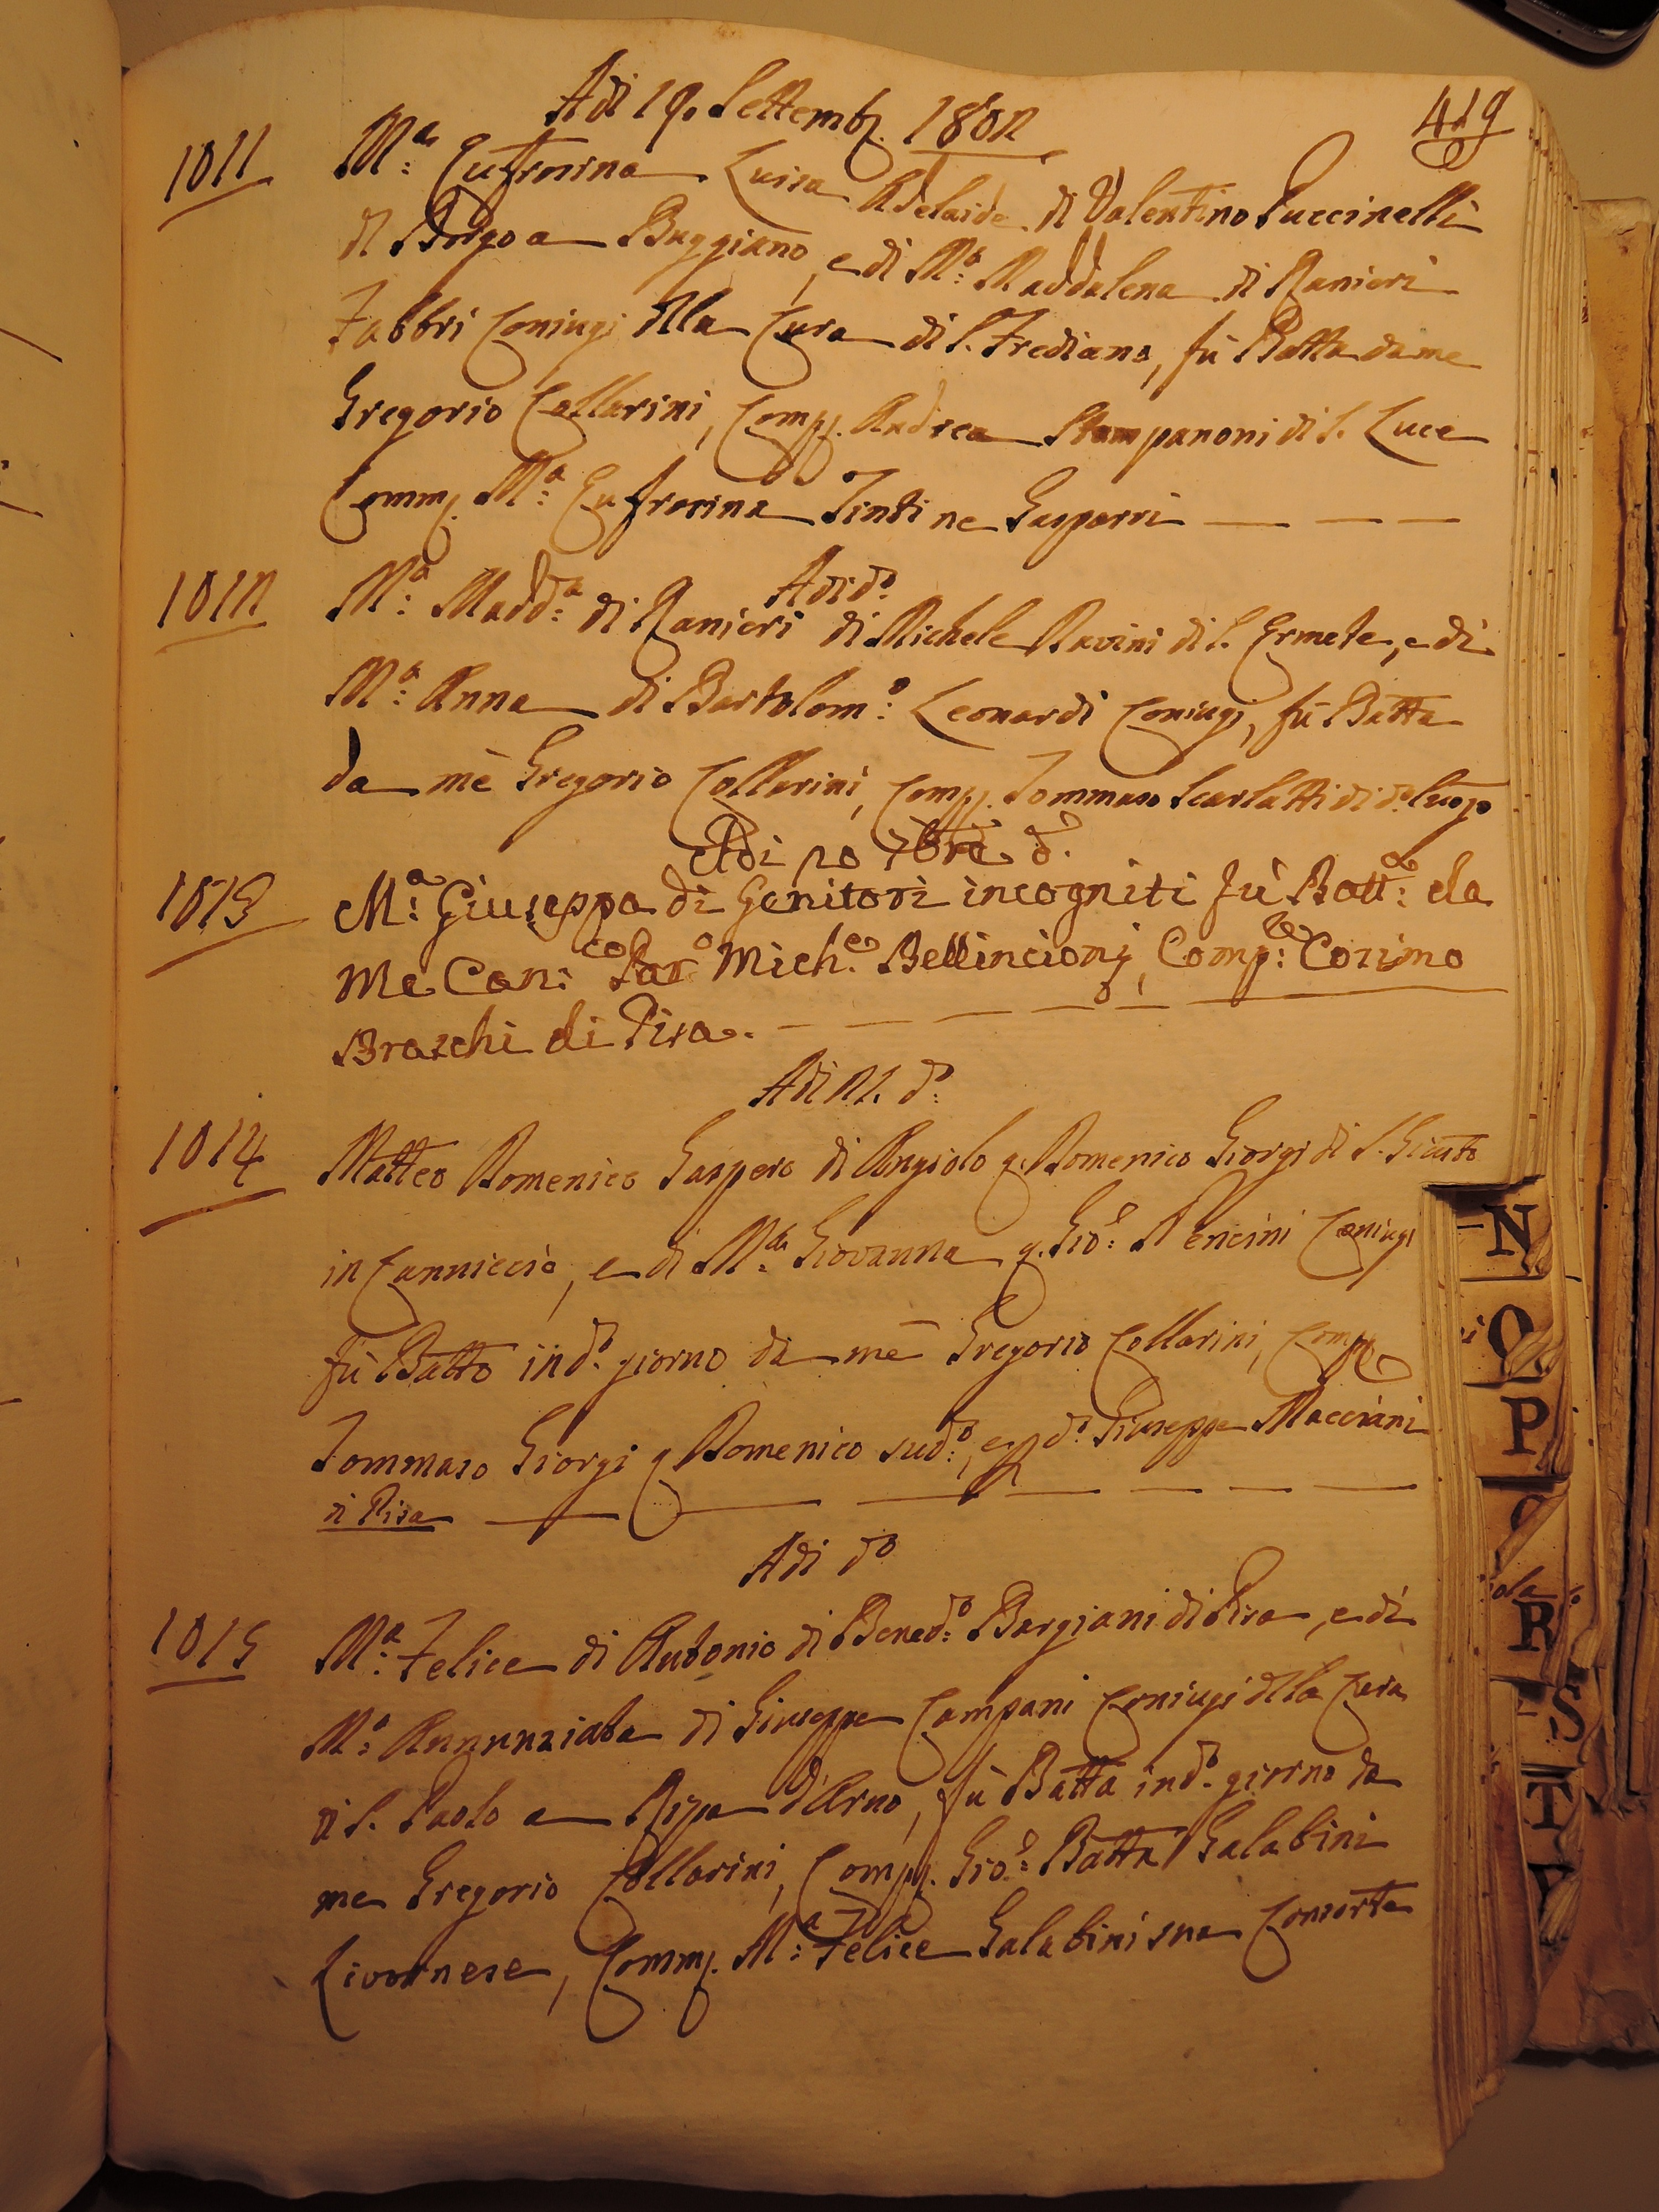 Adi 19. Settembr. 1802
419
1011
M.a Eufrosina Luisa Adelaide di Valentino Puccinelli
di Borgo a Buggiano, e di M.a Maddalena di Ranieri
Fabbri Coniugi della Cura di S. Frediano, fù Batta da me
Gregorio Collarini, Comp. Andrea Stampanoni di S. Luce
Comm. M.a Eufrosina Tinti ne Gasparri
Adi do
1012
M.a Madd.a di Ranieri di Michele Ravini di S. Ermete, e di
M.a Anna di Bartolom.o Leonardi Coniugi, fù Batta
da mè Gregorio Collarini, Comp. Tommaso Scarlatti di do luogo
Adi 20 7bre do.
1013
M.a Giuseppa di Genitori incogniti fù Batt.a da
Me Can.co Mich.e Bellincioni, Comp.e Cosimo
Braschi di Pisa.
Adi 21. do
1014
Matteo Domenico Gaspero di Angiolo q. Domenico Giorgi di S. Giusto
in Canniccio, e di M.a Giovanna q. Gio: Pencini Coniugi
fù Batto in do. giorno da mè Gregorio Collarini, Comp.
Tommaso Giorgi q Domenico sudo, e p do Giuseppe Macciani
di Pisa
Adi do
1015
M.a Felice di Antonio di Bened.o Bargiani di Pisa, e di
M.a Annunziata di Giuseppe Campani Coniugi della Cura
di S. Paolo a Ripa d'Arno, fù Batta in do. giorno da
me Gregorio Collarini, Comp. Gio: Batta Galabini
Livornese, Comm. M.a Felice Galabini sua Consorte
N
O
P
R
S
T